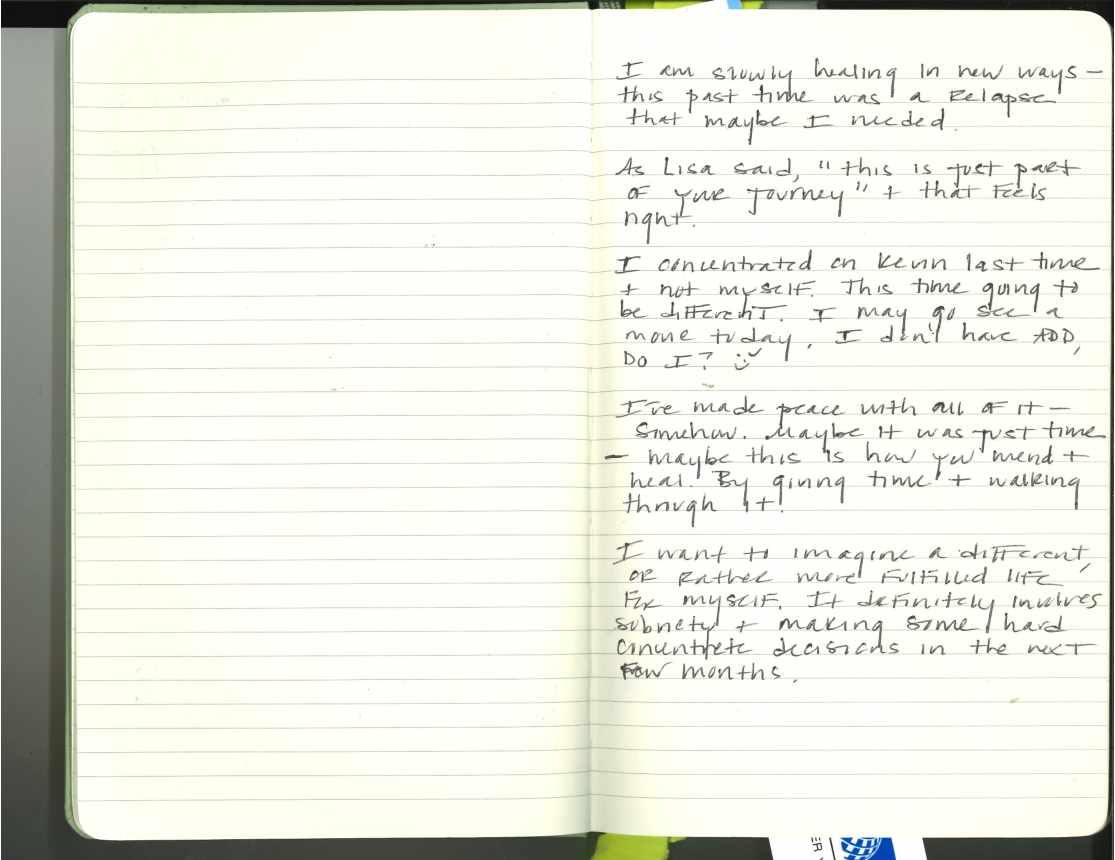 I am slowly healing in new ways —
this past time was a Relapse
that maybe I needed.
As Lisa said, "this is just part
of your journey" + that feels
right.
I concentrated on Kevin last time
+ not myself. This time going to
be different. I may go see a
movie today. I don't have ADD,
Do I? :)
I've made peace with all of it —
Somehow. Maybe it was just time
— maybe this is how you mend +
heal. By giving time + walking
through it.
I want to imagine a different,
or rather more fulfilled life
for myself. It definitely involves
sobriety + making some hard
concrete decisions in the next
few months.
ER